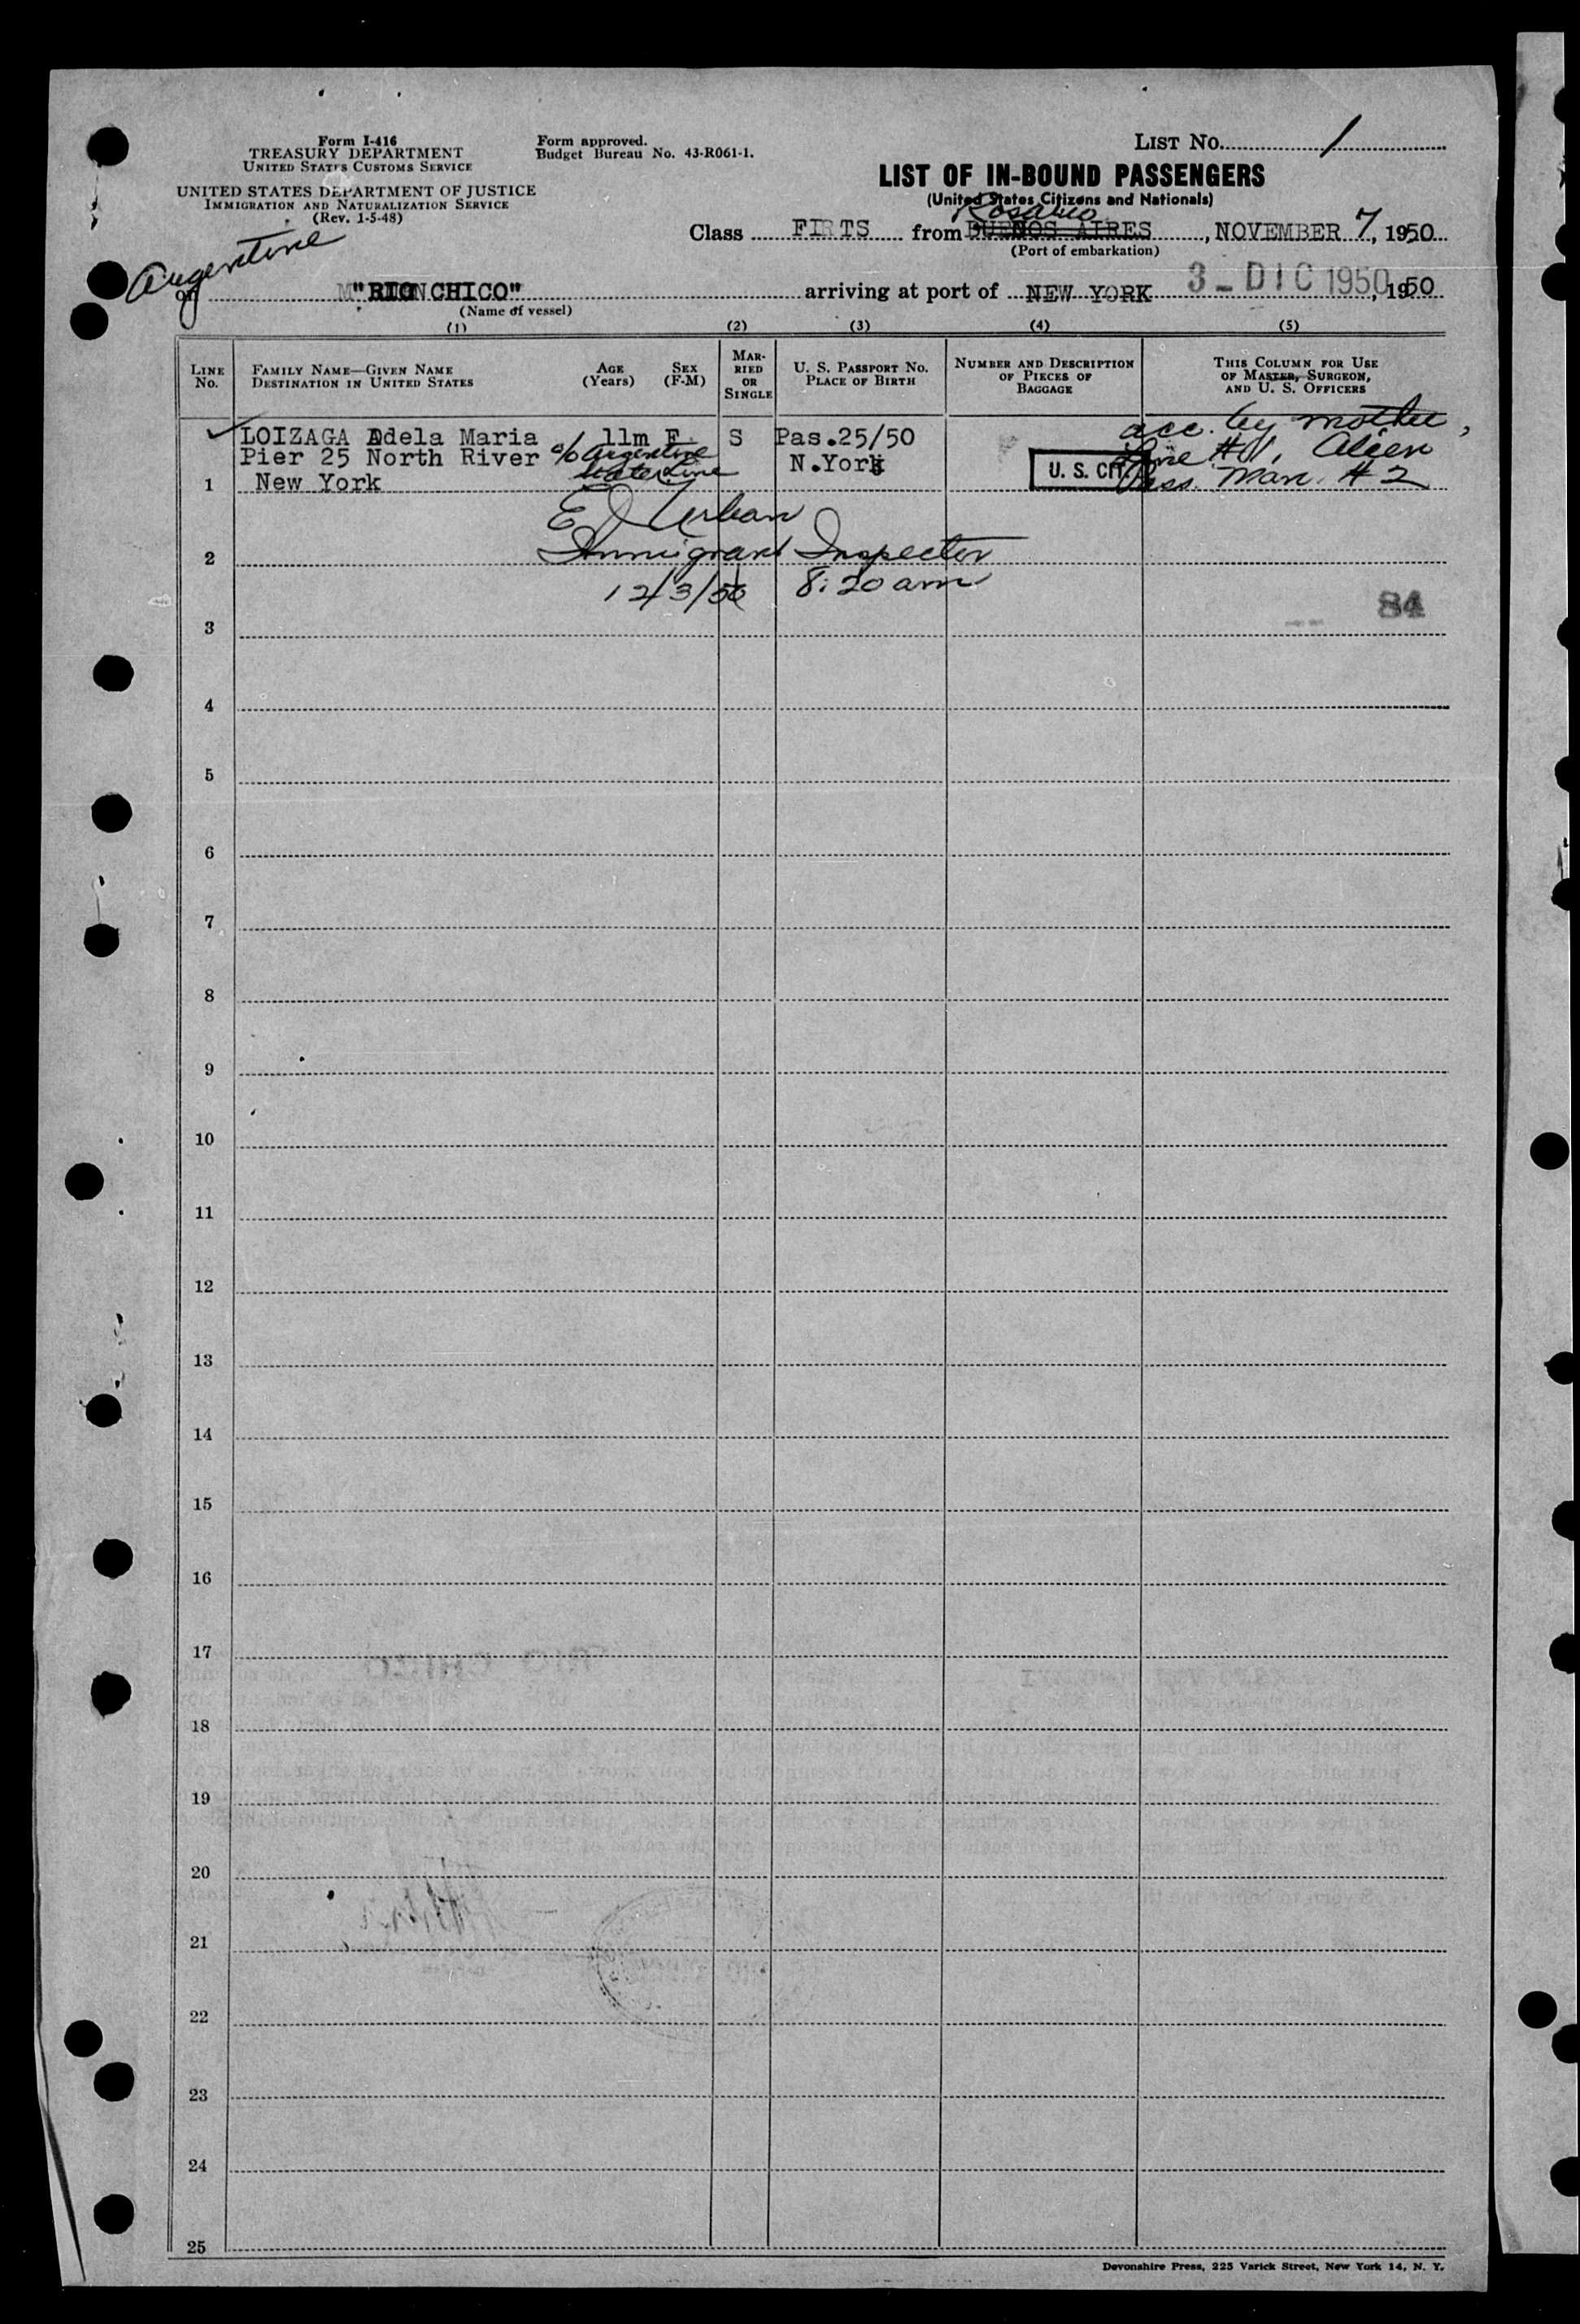 Form I-416
TREASURY DEPARTMENT
UNITED STATES CUSTOMS SERVICE
UNITED STATES DEPARTMENT OF JUSTICE
IMMIGRATION AND NATURALIZATION SERVICE
(Rev. 1-5-48)
Form approved.
Budget Bureau No. 43-R061-1.
LIST NO. 1
LIST OF IN-BOUND PASSENGERS
(United States Citizens and Nationals)
Rosario
Class FIRTS from BUENOS AIRES, NOVEMBER 7, 1950
(Port of embarkation)
Argentine
on "RIO CHICO" arriving at port of NEW YORK 3 - DIC 1950, 1950
(Name of vessel)
(1) (2) (3) (4) (5)
LINE No.
FAMILY NAME—GIVEN NAME
DESTINATION IN UNITED STATES
AGE (Years)
SEX (F-M)
MARRIED OR SINGLE
U. S. PASSPORT NO.
PLACE OF BIRTH
NUMBER AND DESCRIPTION OF PIECES OF BAGGAGE
THIS COLUMN FOR USE OF MASTER, SURGEON, AND U. S. OFFICERS
LOIZAGA Adela Maria 11m F S Pas.25/50 acc. by mother,
Pier 25 North River c/o Argentine State Line N.York U. S. CIT. Line #1, Alien
1 New York Pass. Man. #2
E J Urban
2 Immigrant Inspector
12/3/50 8:20 am
84
3
4
5
6
7
8
9
10
11
12
13
14
15
16
17
18
19
20
21
22
23
24
25
Devonshire Press, 225 Varick Street, New York 14, N. Y.